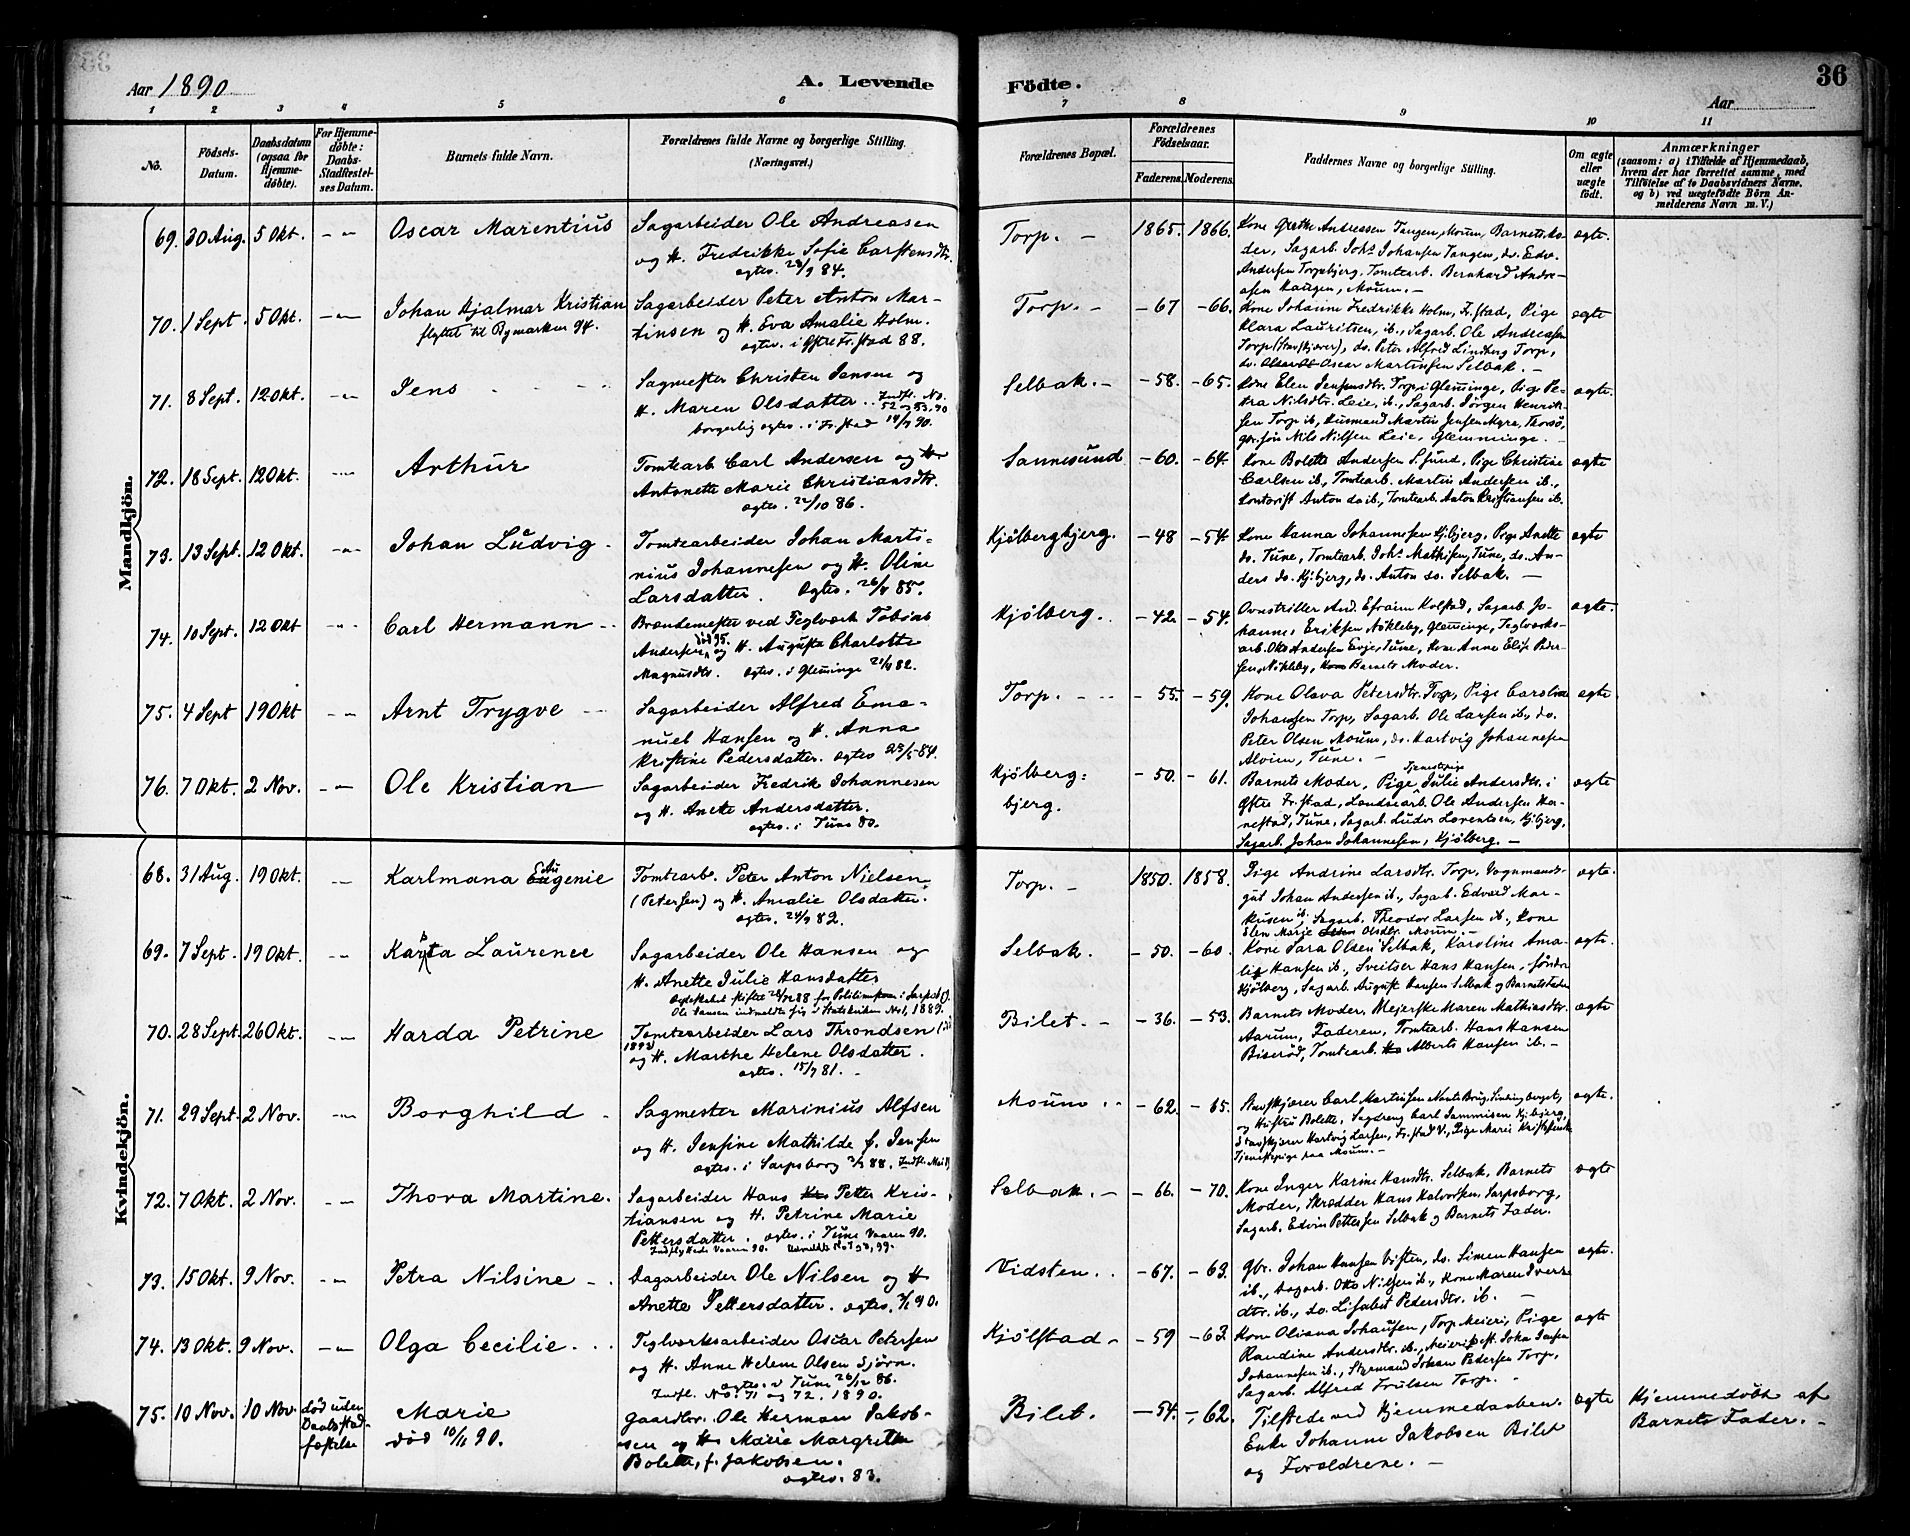 Aar 1890
A. Levende
Födte.
36
Aar
1 2 3 4 5 6 7 8 9 10 11
No.
Födsels-Datum.
Daabsdatum (ogsaa for Hjemmedøbte).
For Hjemmedøbte: Daabs-Stadfæstelses Datum.
Barnets fulde Navn.
Forældrenes fulde Navne og borgerlige Stilling. (Næringsvei.)
Forældrenes Bopæl.
Forældrenes Fødselsaar.
Faderens. Moderens.
Faddernes Navne og borgerlige Stilling.
Om ægte eller uægte født.
Anmærkninger
(saasom: a) i Tilfælde af Hjemmedaab, hvem der har forrettet samme, med Tilføielse af to Daabsvidners Navne, og b) ved uægtefödte Börn Anmelderens Navn m. V.)
Mandkjön.
69. 30 Aug. 5 Okt. Oscar Marentius
Sagarbeider Ole Andreasen
og H. Fredrikke Sofie Carstensdtr.
Torp. 1865. 1866.
Kone Grethe Andressen Tangen, Moum, Barnets Moder, Sagarb. Johs Johansen Tangen, do. Edv.
Andersen Torpebjerg, Tomtearb. Bernhard Andreasen Haugen, Moum.
ægte.
70. 1 Sept. 5 Okt. Johan Hjalmar Kristian
flyttet til Bymarken 94.
Sagarbeider Peter Anton Martinsen og H. Eva Amalie Holm.
ægtev. i Østre Fr.stad 88.
Torp. 67 66.
Kone Johanne Fredrikke Holm, Fr.stad, Pige
Klara Lauritsen, ib., Sagarb. Ole Andreassen
Torp (Stavskjærer), do. Peter Alfred Lindberg Torp,
do. Oscar Martinsen Selbak.
ægte
71. 8 Sept. 12 Okt. Jens
Sagmester Christen Jensen og
H. Maren Olsdatter. Indfl. No. 52 og 53, 90
borgerlig ægtev. i Fr.stad 90.
Selbak. 58. 65.
Kone Elen Jensensdtr. Torp i Glemminge, Pige Petra Nilsdtr. Leie, ib., Sagarb. Jörgen Henriksen Torp ib, Husmand Martin Jensen Myre, Thorsø,
Gbr.søn Nils Nilsen Leie, Glemminge.
ægte.
72. 18 Sept. 12 Okt. Arthur
Tomtearb. Carl Andersen og H
Antonette Marie Christiansdtr.
ægtev. 22/10 86.
Sannesund 60. 64.
Kone Bolette Andersen S.sund, Pige Christine
Carlsen ib, Tomtearb. Martin Andersen ib.,
Anton do ib., Tomtearb. Anton Kristiansen ib.
ægte
73. 13 Sept. 12 Okt. Johan Ludvig
Tomtearbeider Johan Martinius Johannesen og H. Oline
Larsdatter. Ægtev. 85.
Kjølbergbjerg. 48 54.
Kone Hanna Johannesen Kjbjerg, Pige Anette
do. Tune, Tomtearb. Johs Mathisen, Tune, do. Anders do. Kjbjerg, do. Anton do. Selbak.
ægte
74. 10 Sept. 12 Okt Carl Hermann
Brændemester ved Teglværk Tobias
Andersen, død 95. og H. Augusta Charlotte
Magnusdtr. ægtev. i Glemminge 82.
Kjølberg. 42 54.
And. Efraim Kolstad, Sagarb. Johannes Eriksen Nøkleby, Glemminge, Teglværksarb. Otto Andersen Evje, Tune, Kone Anne Elise Pedersen Nøkleby, Barnets Moder.
ægte.
75. 4 Sept 19 Okt Arnt Trygve
Sagarbeider Alfred Emanuel Hansen og H. Anna
Kristine Pedersdatter. ægtev 84.
Torp. 55. 59.
Kone Olava Petersdtr. Torp, Pige Caroline
Johansen Torp, Sagarb. Ole Larsen ib., do.
Peter Olsen Moum, do. Hartvig Johannesen
Alvim, Tune.
ægte.
76. 7 Okt. 2 Nov. Ole Kristian
Sagarbeider Fredrik Johannesen
og H. Anette Andersdatter.
ægtev. i Tune 80.
Kjølbergbjerg. 50. 61.
Barnets Moder, Pige Tjenestepige Julie Andersdtr. i
Østre Fr.stad, Landsarb. Ole Andersen Hannestad, Tune, Sagarb. Ludv. Lorentsen, Kjbjerg,
Sagarb. Johan Johannesen, Kjølberg.
ægte
Kvindekjön.
68. 31 Aug. 19 Okt. Karlmana Eugenie
Tomtearb. Peter Anton Nielsen
(Petersen) og H. Amalie Olsdatter.
ægtev. 82.
Torp. 1850. 1858.
Pige Andrine Larsdtr. Torp, Vognmandsgut Johan Andersen ib., Sagarb. Edvard Markusen ib., Sagarb. Theodor Larsen ib., Kone
Elen Marie Olsdtr. Moum.
ægte.
69. 7 Sept. 19 Okt. Laurence
Sagarbeider Ole Hansen og
H. Anette Julie Hansdatter
Ole Hansen indmeldte sig i Statskirken No 1, 1889.
Selbak. 50. 60.
Kone Sara Olsen Selbak, Karoline Amalie Hansen ib., Sveitser Hans Hansen, Søndre
Kjølberg, Sagarb. August Hansen Selbak og Barnets Fader
ægte.
70. 28 Sept. 26 Okt. Harda Petrine
Tomtearbeider Lars Throndsen
og H. Marthe Helene Olsdatter.
ægtev. 81.
Bilet. 36. 53.
Barnets Moder, Meierske Maren Mathiasdtr.
Aarum, Faderen, Tomtearb. Hans Hansen
Biserød, Tomtearb. Alberts Hansen ib.
ægte
71. 29 Sept. 2 Nov. Borghild
Sagmester Marinius Alfsen
og H. Jensine Mathilde f. Jensen
ægtev. i Sarpsborg 88.
Moum. 62. 65.
Stavskjærer Carl Martinsen
og Hustru Bolette, Sagdreng Carl Kjbjerg,
Stavskjærer Hartvig Larsen, Fr.stad V., Pige Marie
Tjenestepige paa Moum.
ægte.
72. 7 Okt. 2 Nov. Thora Martine.
Sagarbeider Hans Petter Kristiansen og H. Petrine Marie
Pettersdatter. ægtev. i Tune Vaaren 90.
Indflyttede Vaaren 90.
Selbak. 66. 70.
Kone Inger Karine Hansdtr. Selbak, Barnets
Moder, Skrædder Hans Halvorsen, Sarpsborg,
Sagarb. Edvin Pettersen Selbak og Barnets Fader.
ægte
73. 15 Okt. 9 Nov. Petra Nilsine
Dagarbeider Ole Nilsen og H
Anette Pettersdatter. ægtev. 90.
Vidsten. 67. 63.
Gbr. Johan Hansen Visten, do. Simen Hansen
ib., Dagarb. Otto Nilsen ib., Kone Maren
dtr. ib., do. Lisabet Pedersdtr. ib.
ægte.
74. 13 Okt. 9 Nov. Olga Cecilie.
Teglværksarbeider Oscar Petersen
og H. Anne Helene Olsen Sjørn.
ægtev. i Tune 26/12 86.
Indfl. No. 71 og 72. 1890.
Kjølstad 59 63.
Kone Oliana Johansen, Torp Meieri, Pige
Randine Andersdtr. ib., Johan Jensen
Johannesen ib., Styrmand Johan Pedersen Torp,
Sagarb. Alfred Torp.
ægte
75. 10 Nov. 10 Nov. død uden Daabsstadfæstelse Marie
død 10/11 90.
Gaardbr. Ole Herman Jakobsen og H Marie Margrethe
Bolette, f. Jakobsen.
ægtev. 83.
Bilet. 54. 62.
Tilstede ved Hjemmedaaben.
Enke Johanne Jakobsen Bilet
og Forældrene.
ægte
Hjemmedøbt af
Barnets Fader.